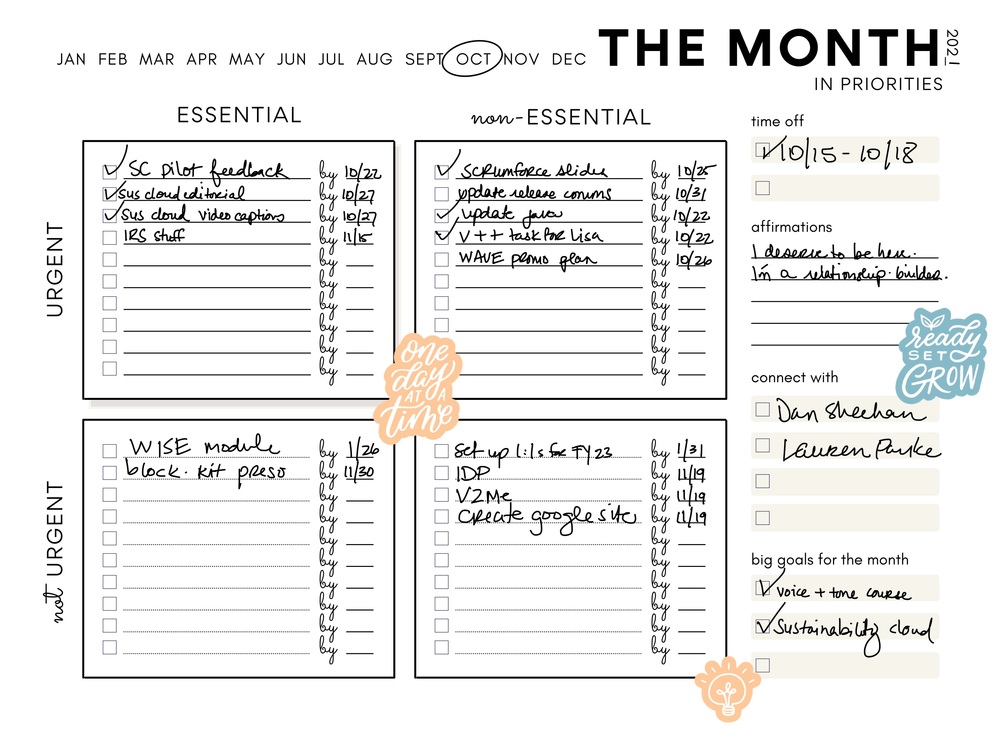 JAN FEB MAR APR MAY JUN JUL AUG SEPT OCT NOV DEC
THE MONTH
2021
IN PRIORITIES
ESSENTIAL
non-ESSENTIAL
URGENT
SC pilot feedback by 10/22
Sus cloud editorial by 10/27
Sus cloud video captions by 10/27
IRS stuff by 11/15
by
by
by
by
by
by
SCRUMforce slides by 10/25
update release comms by 10/31
update java by 10/22
V++ task for Lisa by 10/22
WAVE promo plan by 10/26
by
by
by
by
by
one
day
AT A
time
not URGENT
WISE module by 1/26
block kit preso by 11/30
by
by
by
by
by
by
by
by
Set up 1:1s for FY23 by 1/31
IDP by 11/19
V2Me by 11/19
Create google site by 11/19
by
by
by
by
by
by
time off
10/15 - 10/18
affirmations
I deserve to be here.
I'm a relationship-builder.
ready
SET
GROW
connect with
Dan Sheehan
Lauren Parke
big goals for the month
voice + tone course
Sustainability cloud